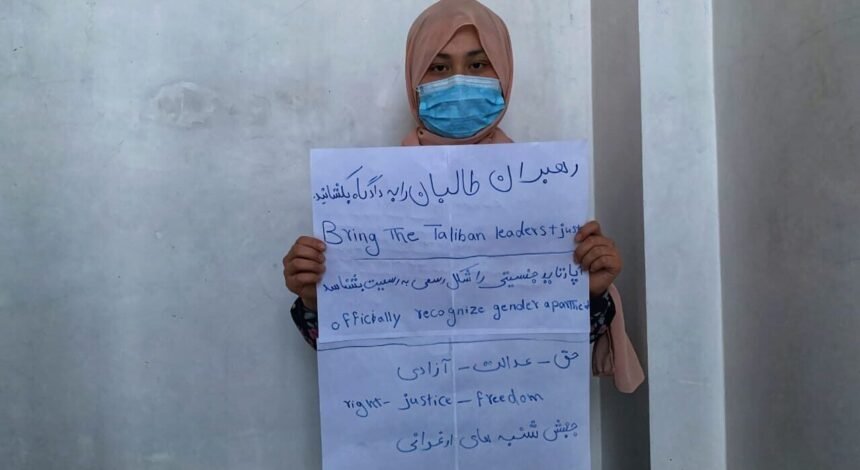 رهبران طالبان را به دادگاه بکشانید.
Bring The Taliban leaders t just
آپارتاید جنسیتی را شکل رسمی به رسمیت بشناسد
officially recognize gender aparthe
حق - عدالت - آزادی
right - justice - freedom
جنبش شنبه های ارغوانی